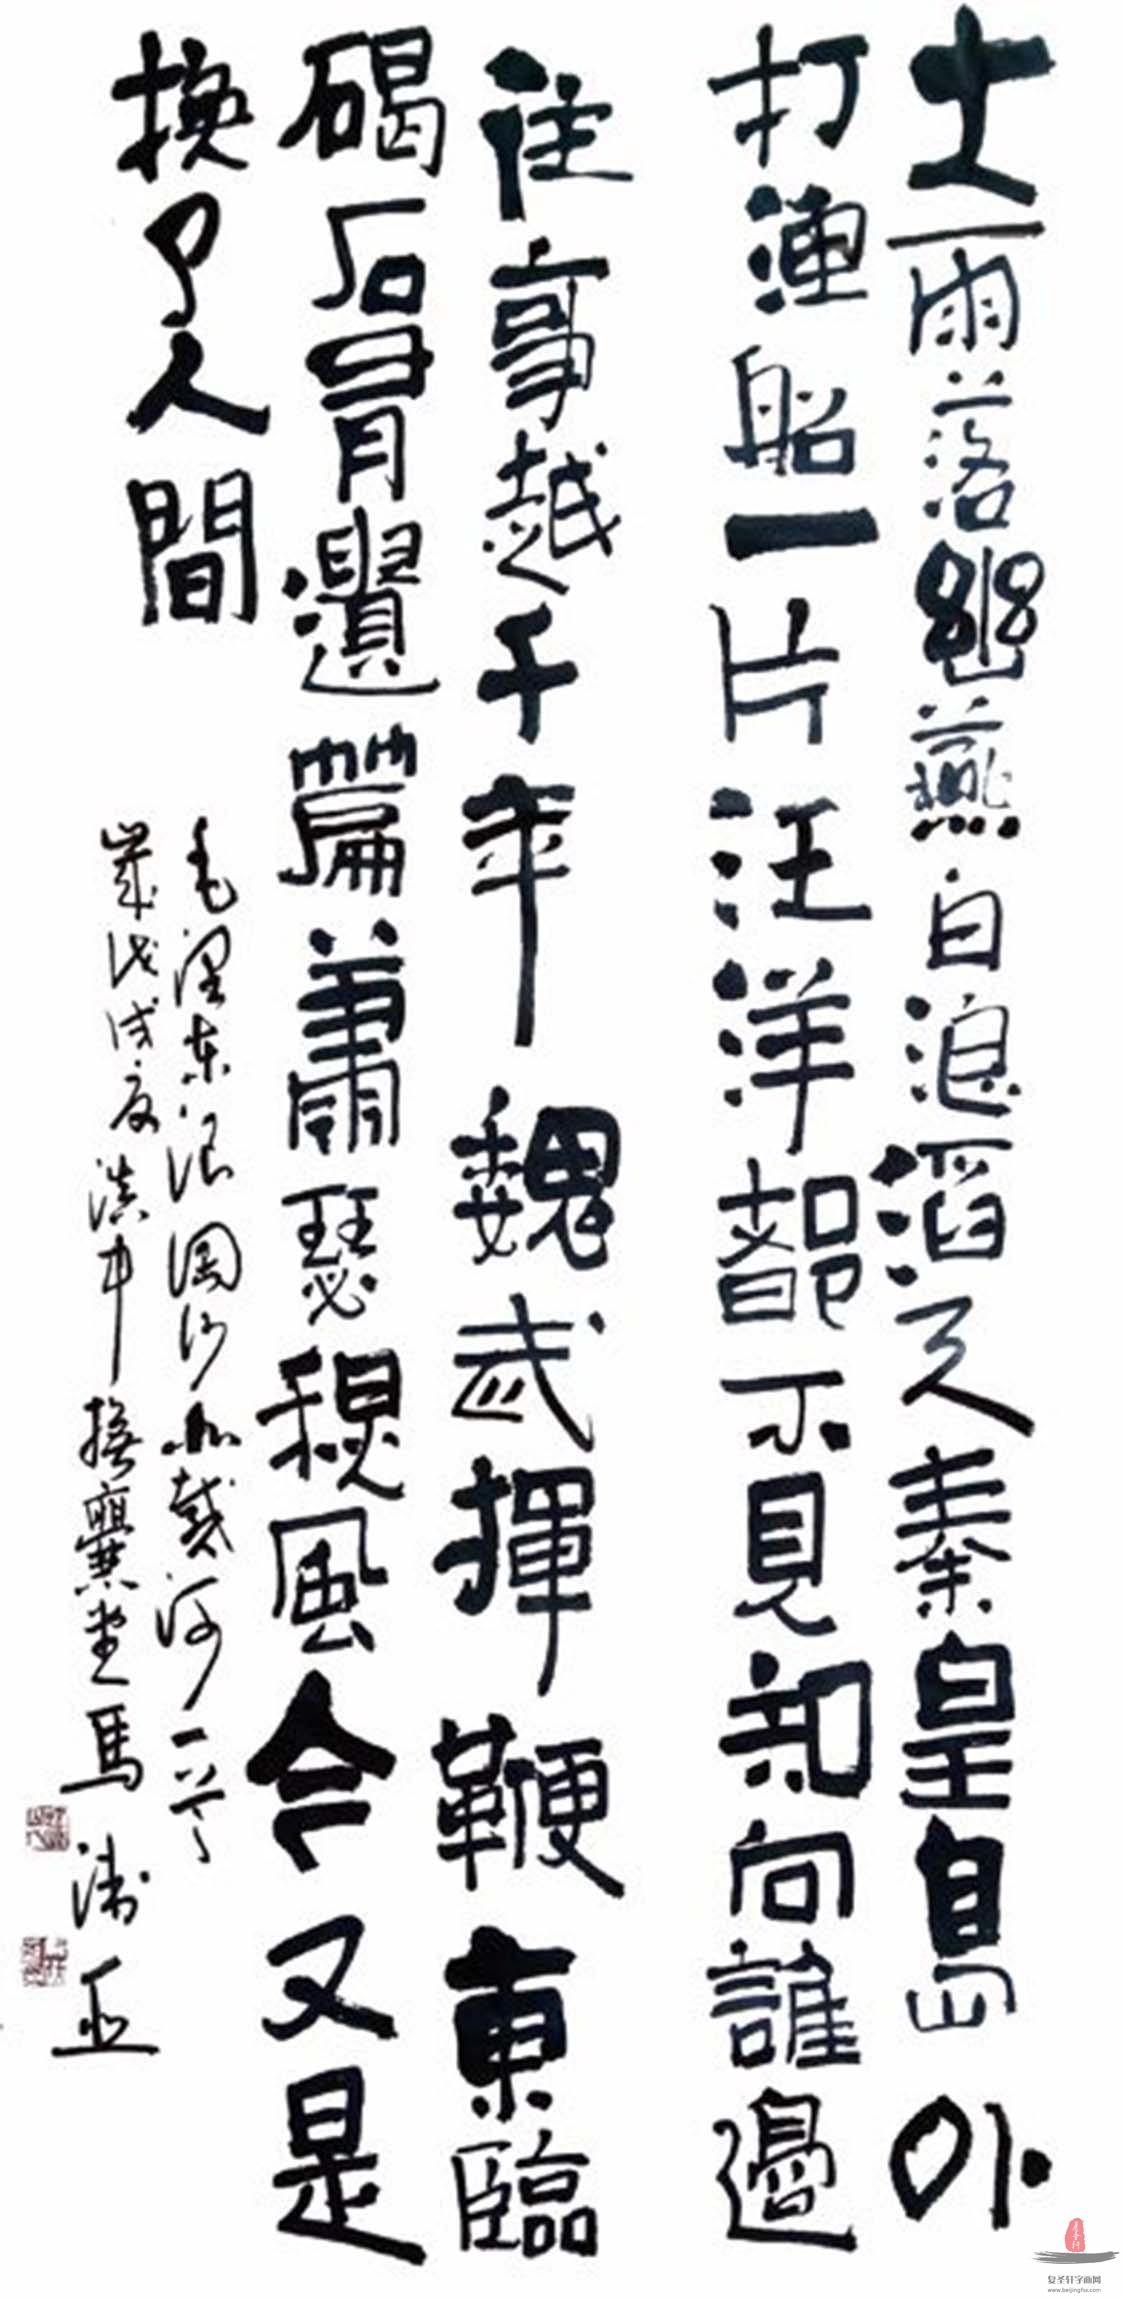 大雨落幽燕白浪滔天秦皇島外
打漁船一片汪洋都不見知向誰邊
往事越千年魏武揮鞭東臨
碣石有遺篇蕭瑟秋風今又是
換了人間
毛澤東浪淘沙北戴河一首
歲戊戌夏滇中撫爨堂馬濤
复圣轩字画网